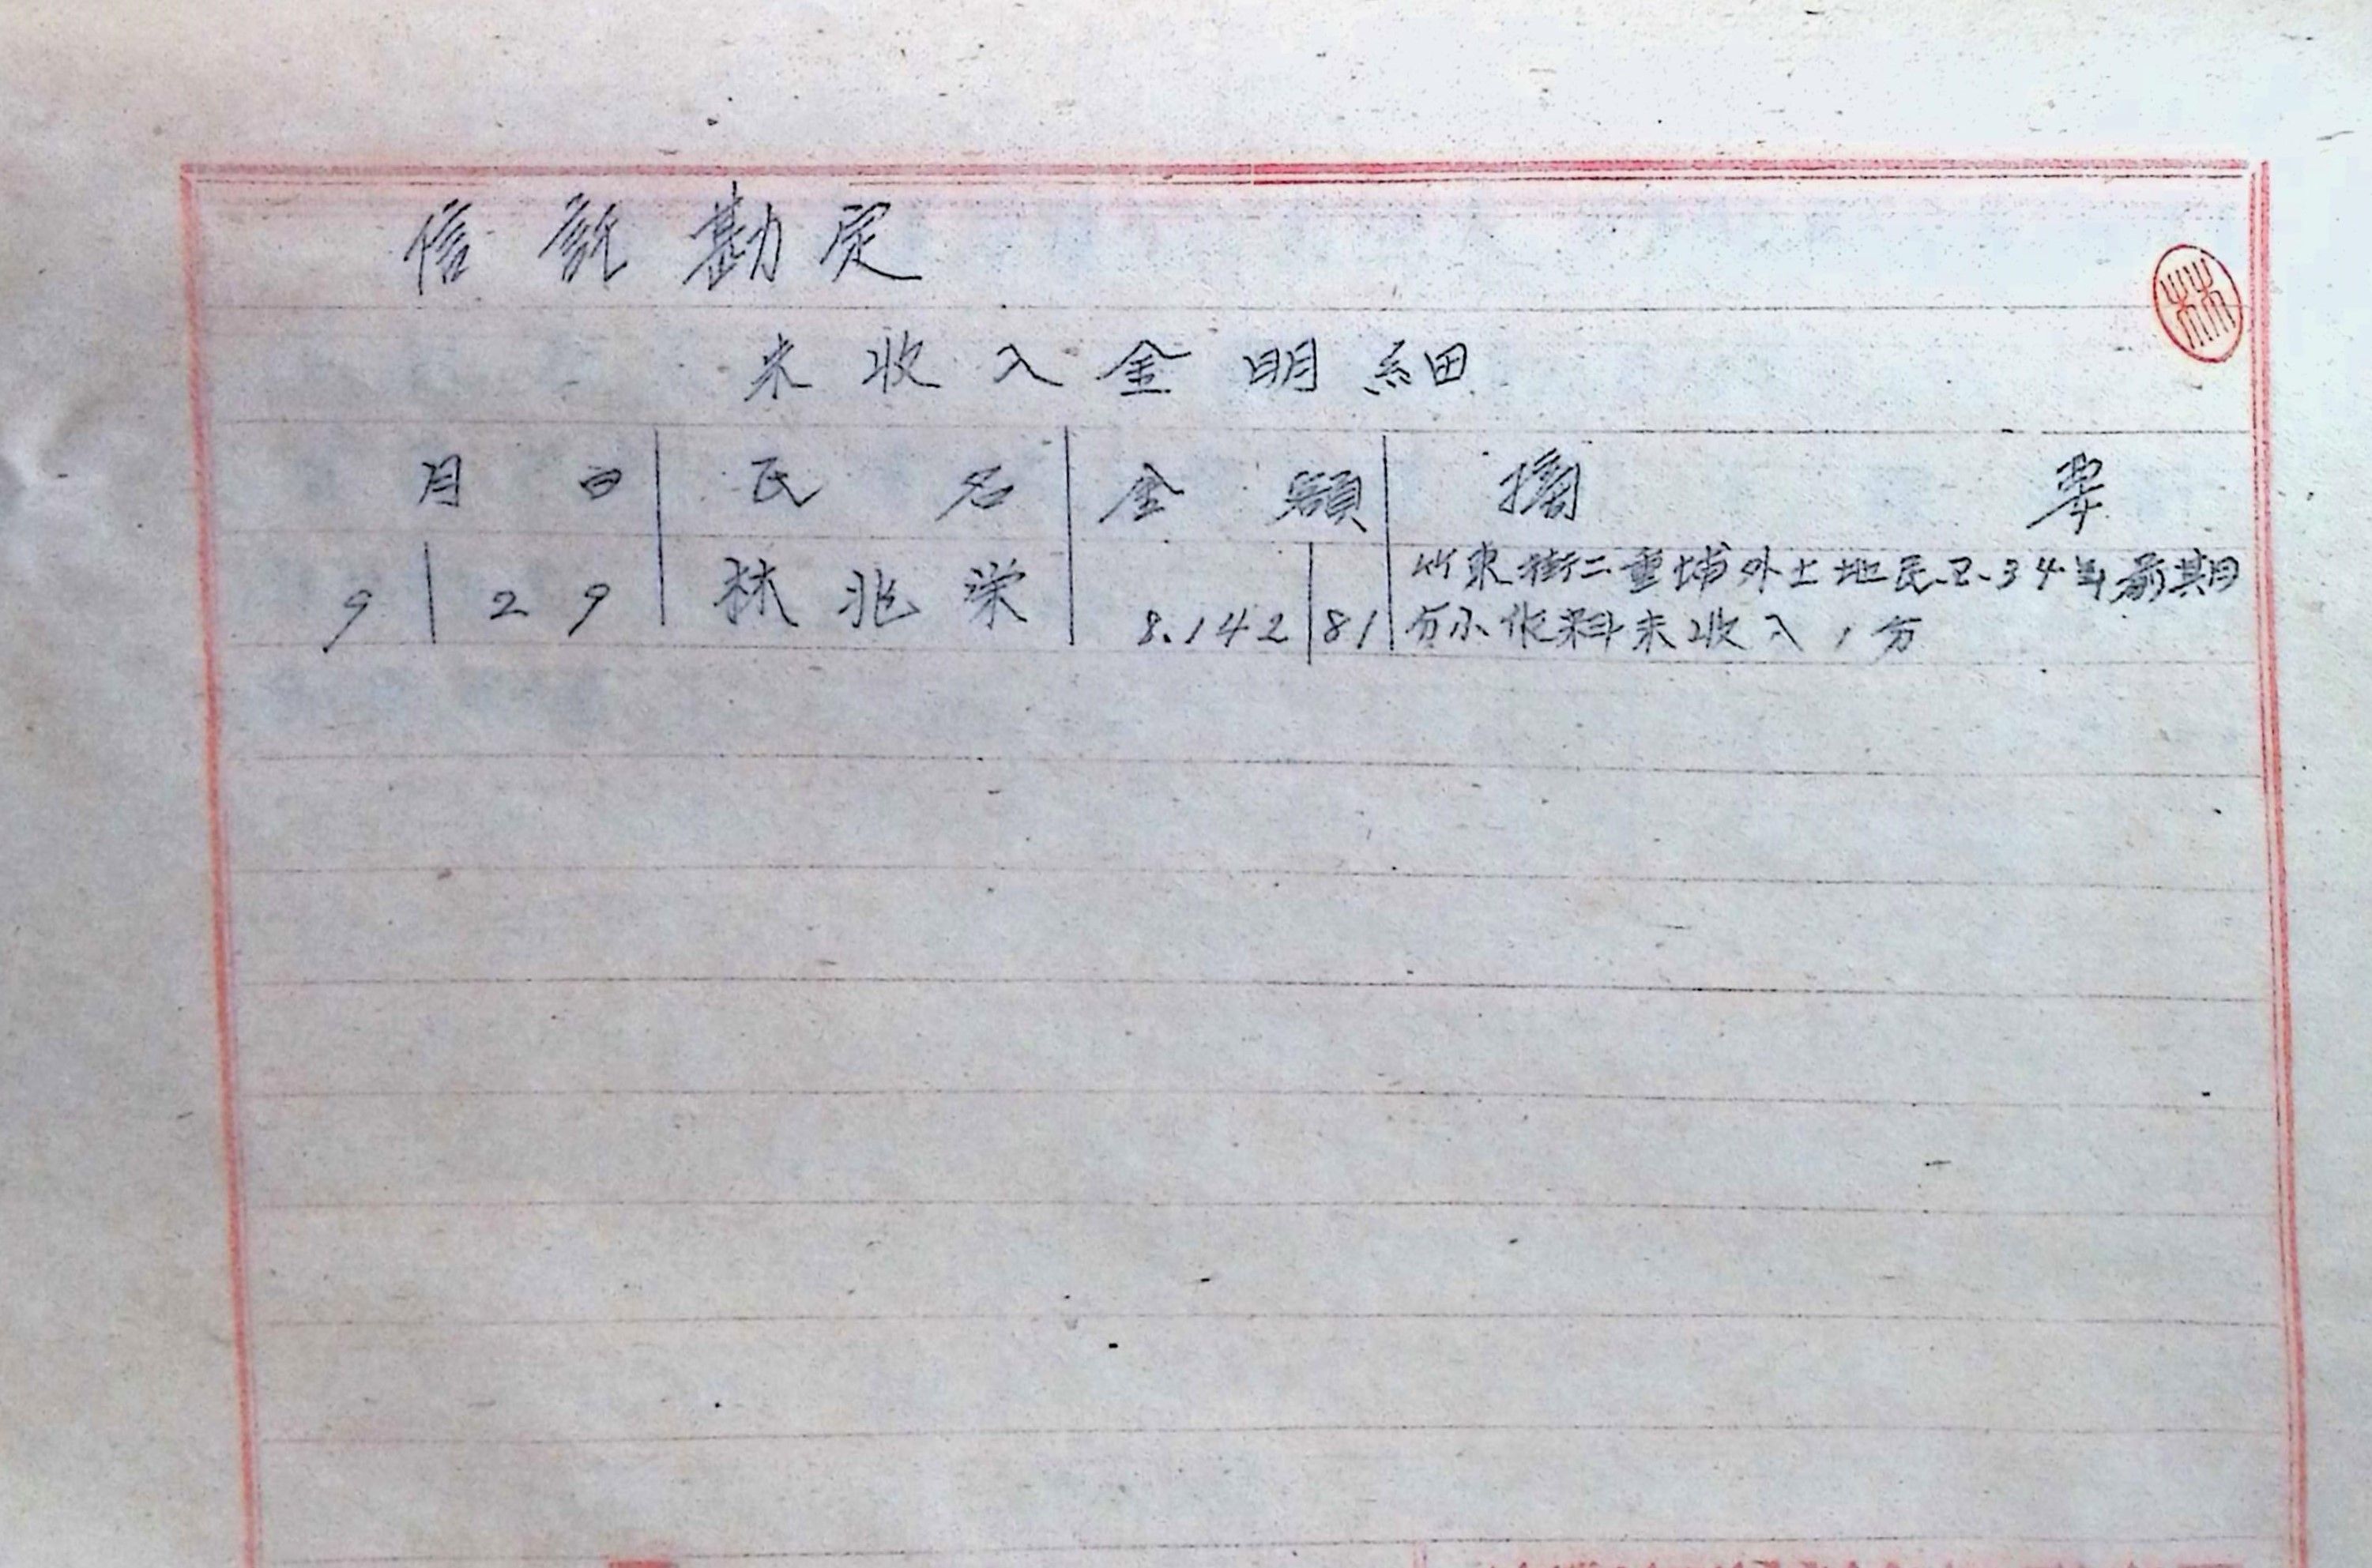 信託勘定
林
未收入金明細
月 日 氏 名 金 額 摘 要
9 29 林兆栄 8.142 81 竹東街二重埔外土地民.国.34年前期
分小作料未收入1分